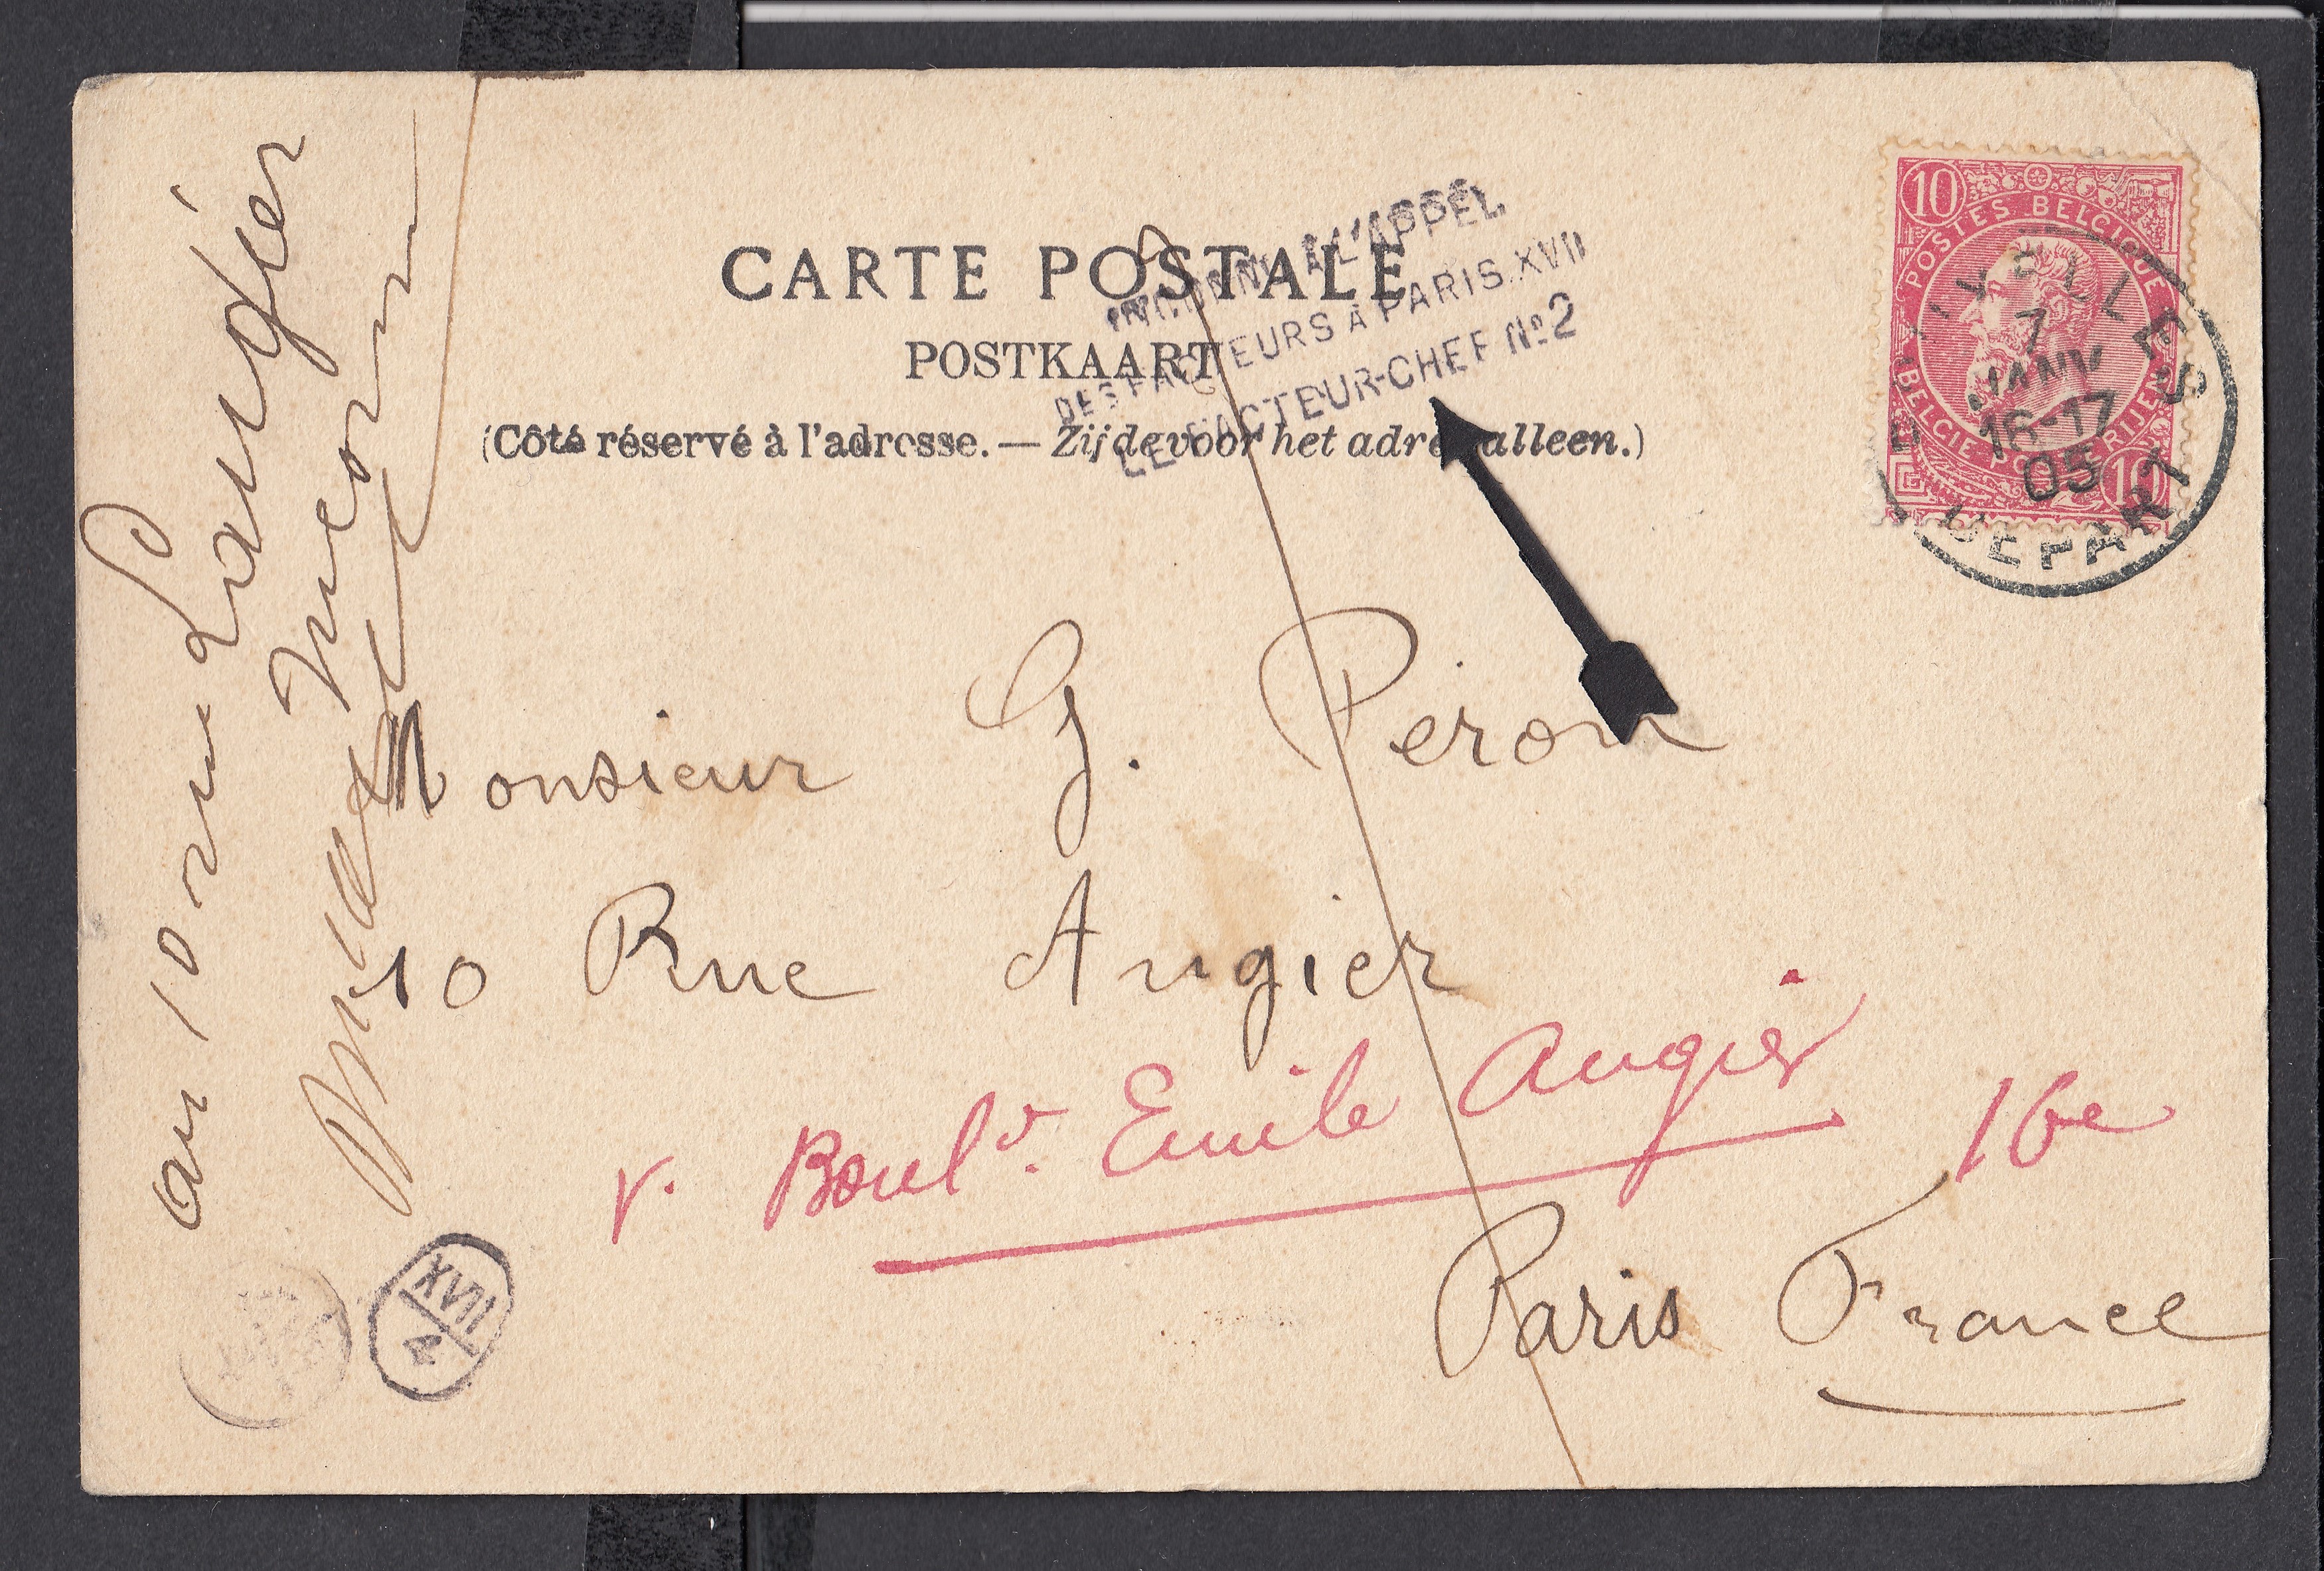 CARTE POSTALE
POSTKAART
(Côté réservé à l'adresse. — Zijde voor het adres alleen.)
INCONNU À L'APPEL
DES FACTEURS À PARIS.XVII
LE FACTEUR-CHEF No 2
10
POSTES BELGIQUE
BELGIE POSTERIJEN
10
BRUXELLES
7
JANV
16-17
05
DEPART
au 10 rue Laugier
Inconnu
Monsieur G. Peron
10 Rue Augier
v. Boulv. Emile Augier 16e
Paris France
XVII
2